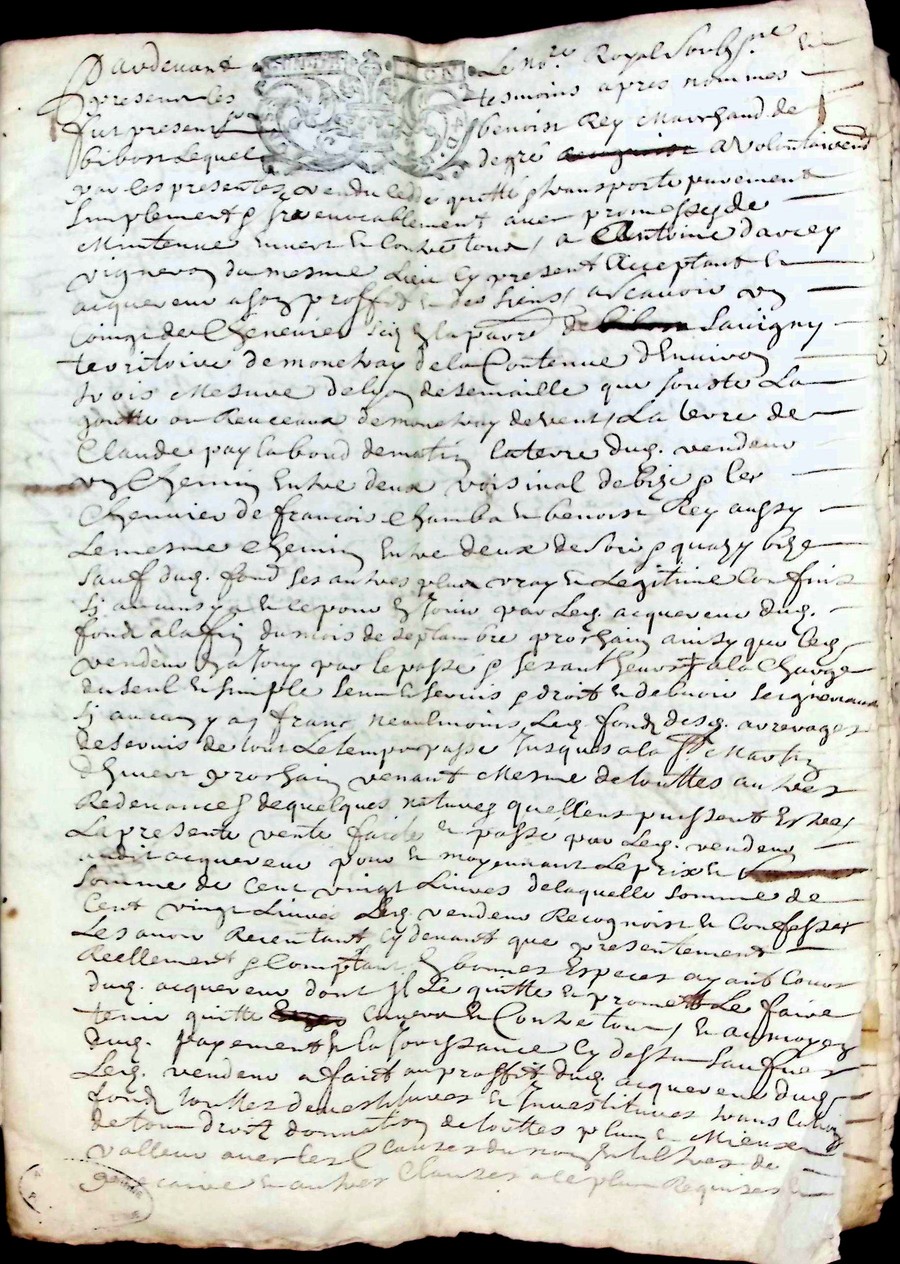 Pardevant Le no.re Royal Soubs.ne &
presence les tesmoins apres nommes
fut present benoist Rey Marchand de
bibost Lequel de gré a volontairemt
par ces presentes vendu cedé quitté & transporte purement
simplement & irrevocablement avec promesse de
Maintenue Envers & Contre tous a Antoine darcey
vigneron du mesme Lieu Cy present acceptant &
acquereur a son proffit & des siens ascavoir un
Coing de Chenevier scis En la parre de Savigny
territoire de monchay de la Contenue d'Environ
trois Mesure de de semaille que Jouste La
goutte ou Ruceaux de monchay de vent La terre de
Claude pay la bond de matin la terre dug. vendeur
un Chemin Entre deux voisinal de bize & les
Chenevier de francois Chamba & benoist Rey aussy
Le mesme Chemin Entre deux de soir & quasy bize
Sauf dug. fond ses autres plus vray & Legitime Confins
Sj aucuns y a & ce pour En Jouir par Leg. acquereur dug.
fond a la fin du mois de septambre prochain ainsy que leg.
vendeur En a Jouy par le passé & ses autheurs a la Charge
du seul & simple sens & servis & droit & debvoir seigneuriaux
Sj aucun y a franc neaulmoins Leg. fond desg. arrerages
de servis de tout Le temps passe Jusques a la St Martin
d'hiver prochain venant Mesme de touttes autres
Redevances de quelques natures quelles puissent Estres
La presente vente faicte & passe par Leg. vendeur
audit acquereur pour & moyennant Le prix &
Somme de Cent vingt Livres de laquelle somme de
Cent vingt Livres Leg. vendeur Recognoist & Confesse
Les avoir Receu tant Cy devant que presentement
Reellement & Comptant En bonnes Especes ayant Cours
dug. acquereur dont Jl Le quitte & promet Le faire
tenir quitte Envers & Contre tous & au moyen
Dug. payement & la Jouissance Cy dessus
Leg. vendeur a faict au proffit dug. acquereur dug.
fond touttes demestitures & Jnvestitures
de tous droit donnation de touttes plus & Mieux
valleur avec les Clauses du nom &
autres Clauses a ce plus Requises &